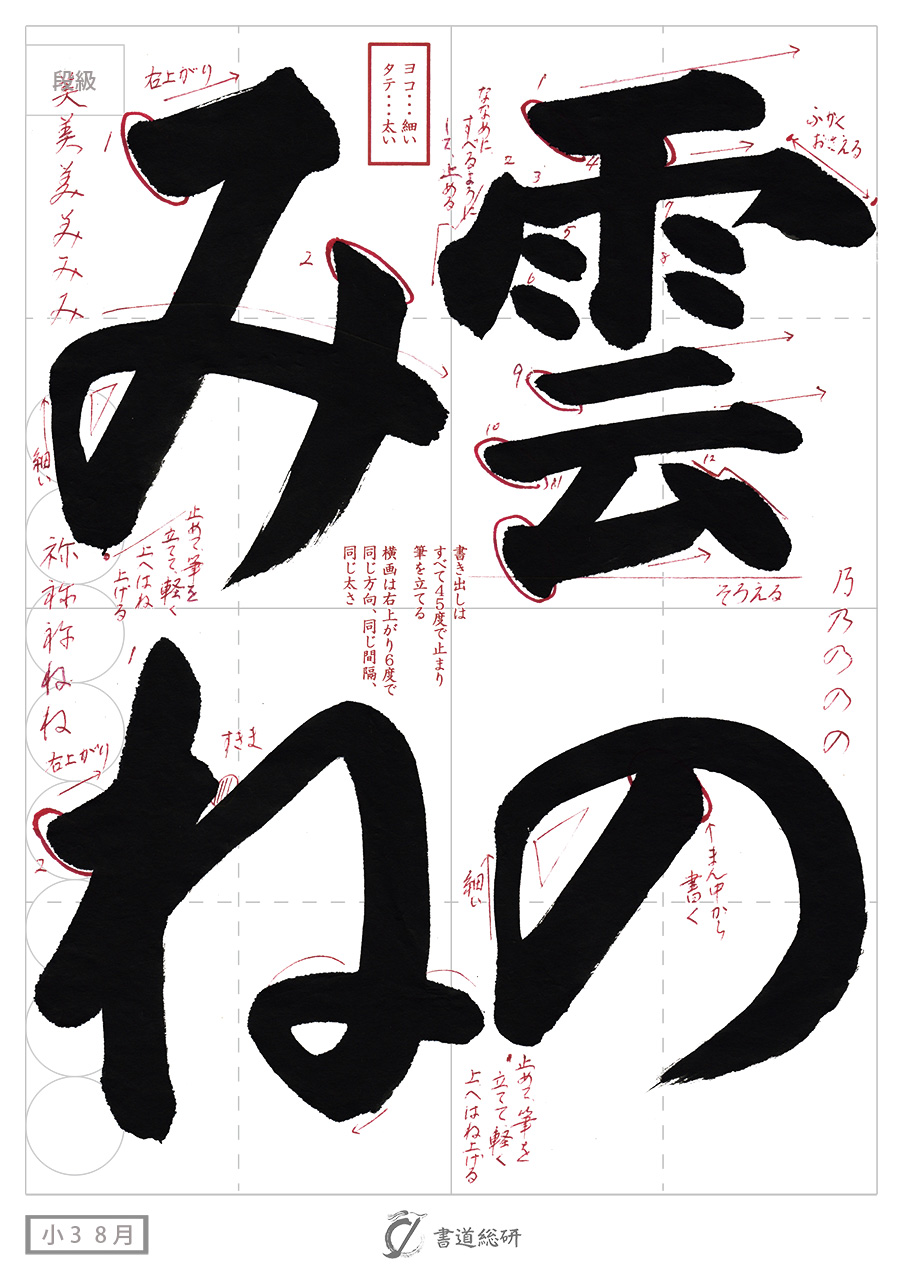 雲の
みね
段級
ヨコ・・・細い
タテ・・・太い
右上がり
1
2
ななめに
すべるように
して、止める
1
2
3
4
5
6
7
8
9
10
11
12
ふかく
おさえる
そろえる
書き出しは
すべて45度で止まり
筆を立てる
横画は右上がり6度で
同じ方向、同じ間隔、
同じ太さ
美
美
美
美
み
み
細い
止めて、筆を
立てて、軽く
上へはね
上げる
祢
祢
祢
ね
ね
右上がり
1
2
すきま
乃
乃
乃
の
の
細い
まん中から
書く
止めて、筆を
立てて、軽く
上へはね上げる
小3 8月
書道総研